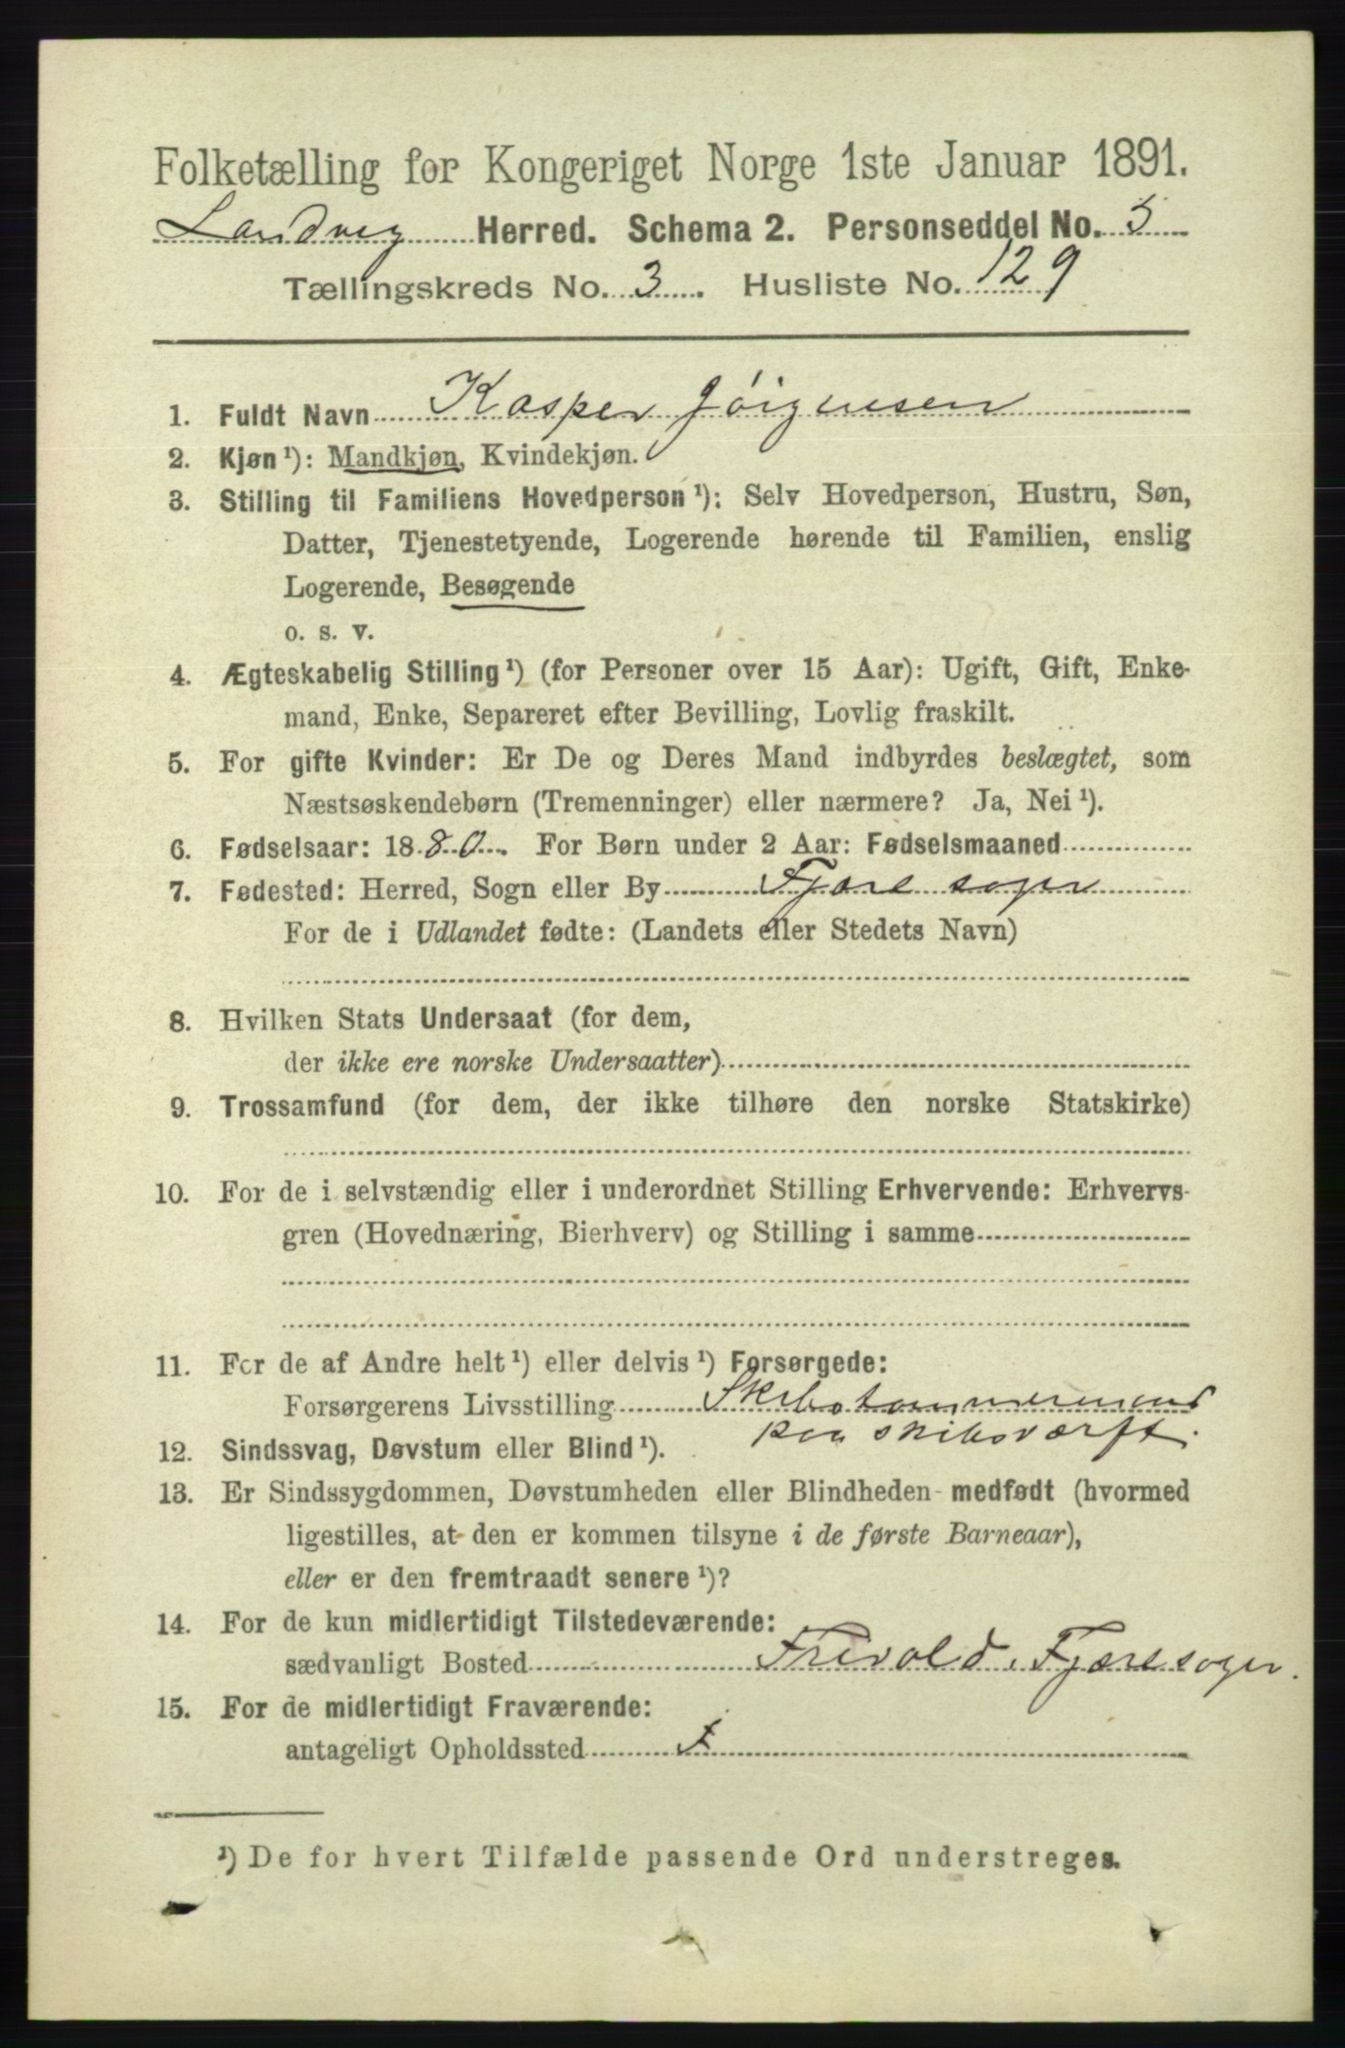 Folketælling for Kongeriget Norge 1ste Januar 1891.
Landvig Herred. Schema 2. Personseddel No. 5
Tællingskreds No. 3. Husliste No. 129
1. Fuldt Navn Kasper Jörgensen
2. Kjøn¹): Mandkjøn, Kvindekjøn.
3. Stilling til Familiens Hovedperson¹): Selv Hovedperson, Hustru, Søn,
Datter, Tjenestetyende, Logerende hørende til Familien, enslig
Logerende, Besøgende
o. s. v.
4. Ægteskabelig Stilling¹) (for Personer over 15 Aar): Ugift, Gift, Enke-
mand, Enke, Separeret efter Bevilling, Lovlig fraskilt.
5. For gifte Kvinder: Er De og Deres Mand indbyrdes beslægtet, som
Næstsøskendebørn (Tremenninger) eller nærmere? Ja, Nei¹).
6. Fødselsaar: 1880. For Børn under 2 Aar: Fødselsmaaned
7. Fødested: Herred, Sogn eller By Fjære sogn
For de i Udlandet fødte: (Landets eller Stedets Navn)
8. Hvilken Stats Undersaat (for dem,
der ikke ere norske Undersaatter)
9. Trossamfund (for dem, der ikke tilhøre den norske Statskirke)
10. For de i selvstændig eller i underordnet Stilling Erhvervende: Erhvervs-
gren (Hovednæring, Bierhverv) og Stilling i samme
11. For de af Andre helt¹) eller delvis¹) Forsørgede:
Forsørgerens Livsstilling Skibstømmermand
paa skibsværft.
12. Sindssvag, Døvstum eller Blind¹).
13. Er Sindssygdommen, Døvstumheden eller Blindheden medfødt (hvormed
ligestilles, at den er kommen tilsyne i de første Barneaar),
eller er den fremtraadt senere¹)?
14. For de kun midlertidigt Tilstedeværende:
sædvanligt Bosted Frivold, Fjære sogn.
15. For de midlertidigt Fraværende:
antageligt Opholdssted
¹) De for hvert Tilfælde passende Ord understreges.